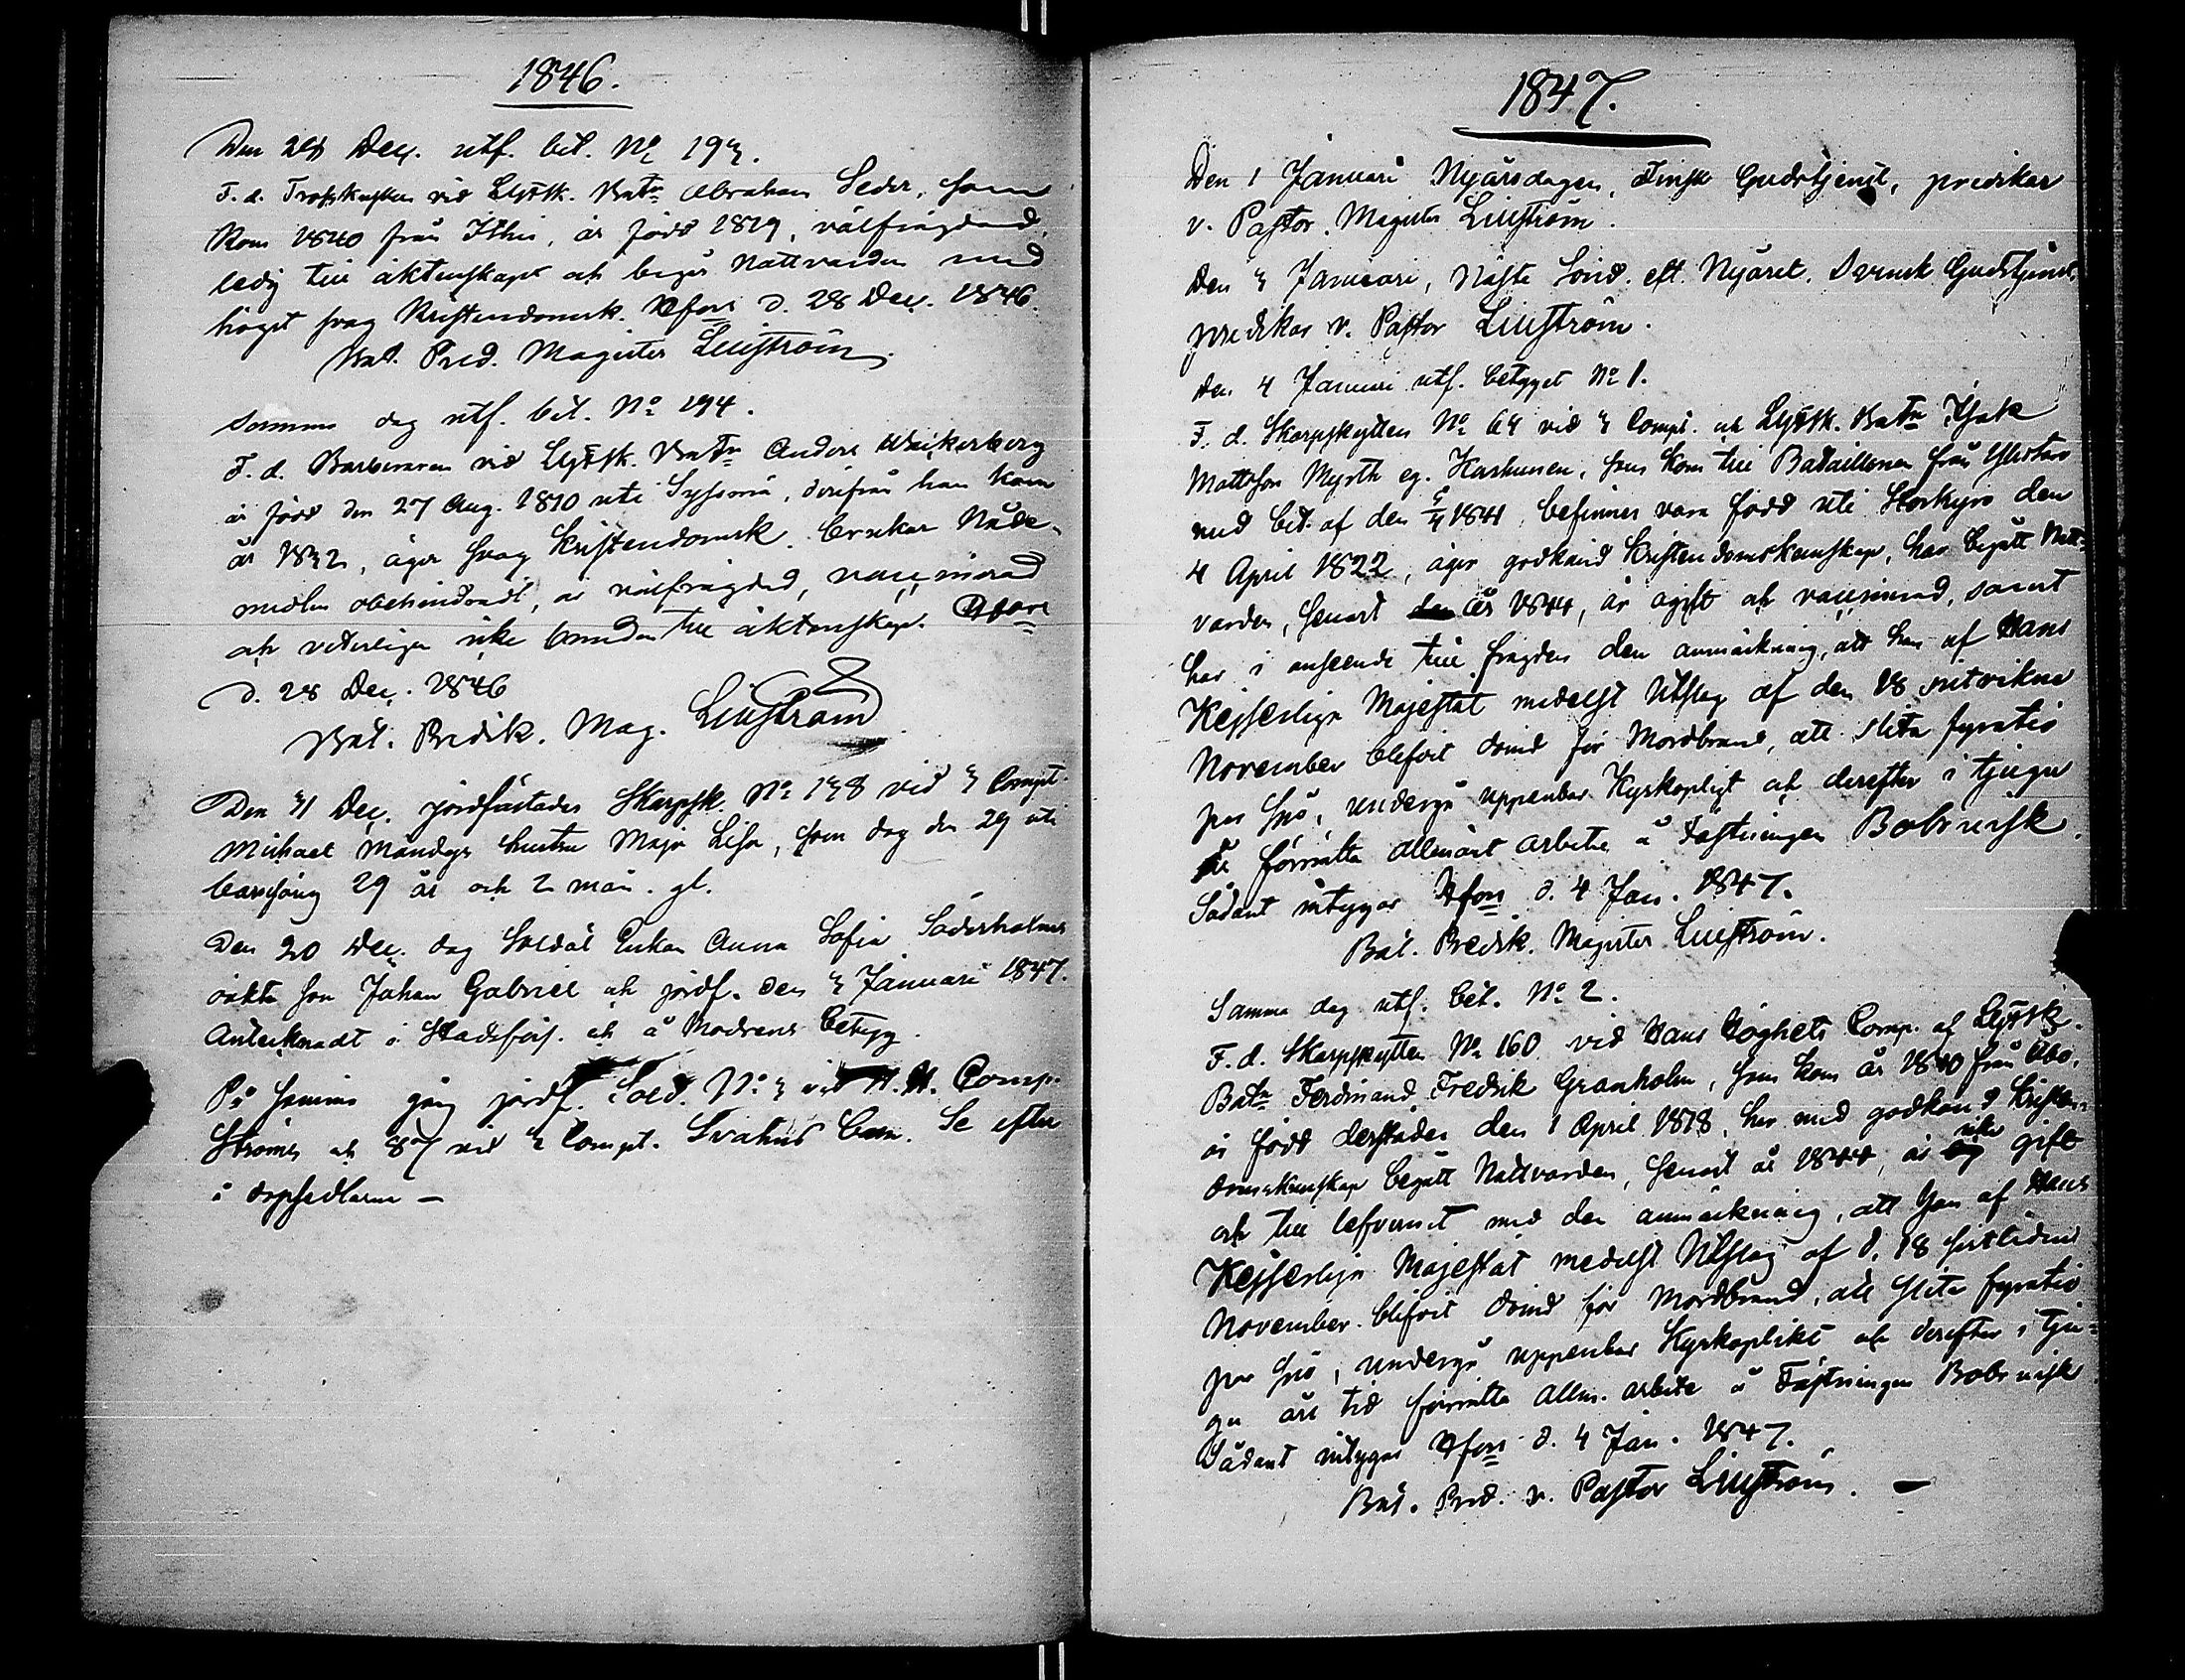 1846.
Den 28 Dec. utf. bet. No 193.
F. d. Trosskusken vid LgFSk. Batn Abraham Seder, som
kom 1840 från Itthis, är född 1819, välfrägdad,
ledig till äktenskap och begår Nattvarden med
högst svag Kristendomsk. Hfors d. 28 Dec. 1846.
Bat. Pred. Magister Liljström.
Samma dag utf. bet. No 194.
F. d. Barberaren vid LgFSk. Batn Anders Wackerberg
är född den 27 Aug. 1810 uti , derifrån han kom
år 1832, äger svag Kristendomsk. brukar Nåde-
medlen obehindradt, är välfrägdad, vaccinerad
och veterligen icke bunden till äktenskap. Hfors
d. 28 Dec. 1846
Bat. Predik. Mag. Liljström
Den 31 Dec. jordfästades Skarpsk. No 138 vid 3 Comp:t
Michael Måndags hustru Maja Lisa, som dog den 29 uti
barnsäng 29 år och 2 mån. gl.
Den 20 Dec. dog Soldat Enkan Anna Sofia Söderholms
oäkta son Johan Gabriel och jordf. den 3 Januari 1847.
Antecknadt i Stadsförs. och å Modrens betyg.
På samma gång jordf. Sold. No 3 vid H. H. Comp.
Ströms och 87 vid 2 Compt. Svahns barn. Se efter
i dopsedlarne —
1847.
Den 1 Januari Nyårsdagen, Finsk Gudstjenst, predikar
v. Pastor. Magister Liljström.
Den 3 Januari, Näste Sönd. eft. Nyåret. Svensk Gudstjenst,
predikar v. Pastor Liljström.
Den 4 Januari utf. betyget No 1.
F. d. Skarpskytten No 64 vid 3 Comp:t. af LgFSk. Batn Isak
Mattsson Myrth eg. Karhunen, som kom till Bataillonen från Ylistaro
med bet. af den 5/4 1841, befinnes vara född uti Storkyro den
4 April 1822, äger godkänd Kristendomskunskap, har begått Natt-
varden, senast år 1844, är ogift och vaccinerad, samt
har i anseende till frägden den anmärkning, att han af Hans
Kejserliga Majestät medelst Utslag af den 18 sistvikne
November blifvit dömd för Mordbrand, att slita fyratio
par spö, undergå uppenbar Kyrkopligt och derefter i tjugu
år förrätta allmänt arbete å Fästningen Bobruisk.
Sådant intygar Hfors d. 4 Jan. 1847.
Bat. Predik. Magister Liljström.
Samma dag utf. bet. No 2.
F. d. Skarpskytten No 160 vid Hans Höghets Comp. af LgFSk.
Batn Ferdinand Fredrik Granholm, som kom år 1840 från Åbo,
är född derstädes den 1 April 1818, har med godkänd Kristen-
domskunskap begått Nattvarden, senast år 1844, är icke gift
och till lefvernet med den anmärkning, att han af Hans
Kejserliga Majestät medelst Utslag af d. 18 sistlidne
November blifvit dömd för Mordbrand, att slita fyratio
par spö, undergå uppenbar Kyrkoplikt och derefter i tju-
gu års tid förrätta allm. arbete å Fästningen Bobruisk
Sådant intygar Hfors d. 4 Jan. 1847.
Bat. Pred. v. Pastor Liljström. —